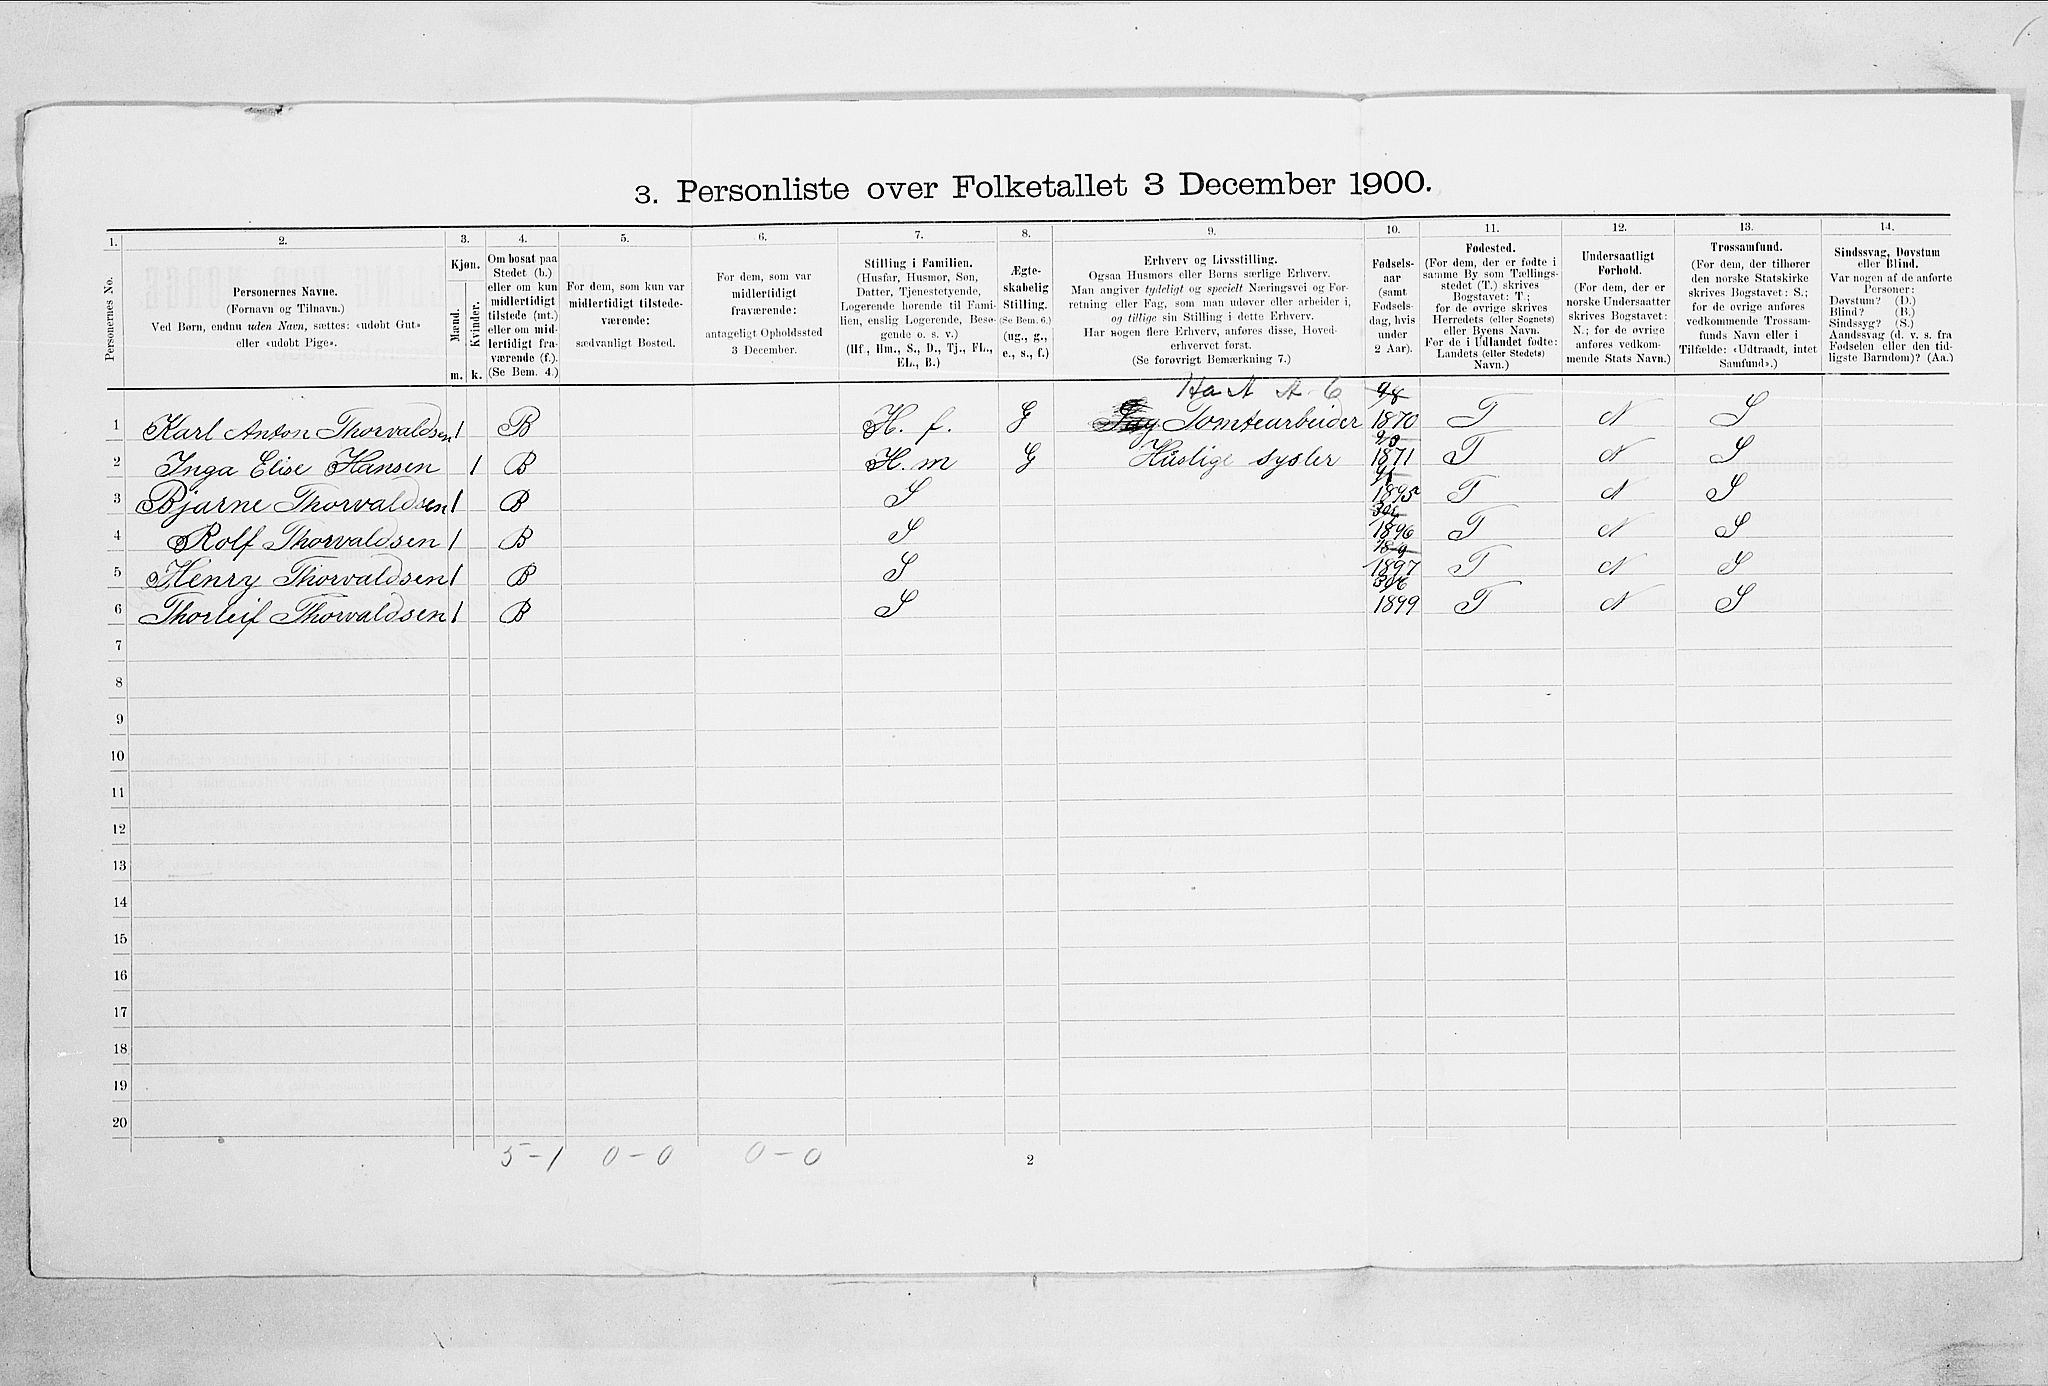 3. Personliste over Folketallet 3 December 1900.
1. 2. 3. 4. 5. 6. 7. 8. 9. 10. 11. 12. 13. 14.
Personernes No.
Personernes Navne.
(Fornavn og Tilnavn.)
Ved Børn, endnu uden Navn, sættes: «udøbt Gut»
eller «udøbt Pige».
Kjøn.
Mænd.
Kvinder.
m. k.
Om bosat paa
Stedet (b.)
eller om kun
midlertidigt
tilstede (mt.)
eller om mid-
lertidigt fra-
værende (f.).
(Se Bem. 4.)
For dem, som kun var
midlertidigt tilstede-
værende:
sædvanligt Bosted.
For dem, som var
midlertidigt
fraværende:
antageligt Opholdssted
3 December.
Stilling i Familien.
(Husfar, Husmor, Søn,
Datter, Tjenestetyende,
Logerende hørende til Fami-
lien, enslig Logerende, Besø-
gende o. s. v.)
(Hf., Hm., S., D., Tj., FL.,
EL., B.)
Ægte-
skabelig
Stilling.
(Se Bem. 6.)
(ug., g.,
e., s., f.)
Erhverv og Livsstilling.
Ogsaa Husmors eller Børns særlige Erhverv.
Man angiver tydeligt og specielt Næringsvei og For-
retning eller Fag, som man udøver eller arbeider i,
og tillige sin Stilling i dette Erhverv.
Har nogen flere Erhverv, anføres disse, Hoved-
erhvervet først.
(Se forøvrigt Bemærkning 7.)
Fødsels-
aar
(samt
Fødsels-
dag, hvis
under
2 Aar).
Fødested.
(For dem, der er fødte i
samme By som Tællings-
stedet (T.) skrives
Bogstavet: T;
for de øvrige skrives
Herredets (eller Sognets)
eller Byens Navn.
For de i Udlandet fødte:
Landets (eller Stedets)
Navn.)
Undersaatligt
Forhold.
(For dem, der er
norske Undersaatter
skrives Bogstavet:
N.; for de øvrige
anføres vedkom-
mende Stats Navn.)
Trossamfund.
(For dem, der tilhører
den norske Statskirke
skrives Bogstavet: S.;
for de øvrige anføres
vedkommende Trossam-
funds Navn eller i
Tilfælde: «Udtraadt, intet
Samfund».)
Sindssvag, Døvstum
eller Blind.
Var nogen af de anførte
Personer:
Døvstum? (D.)
Blind? (B.)
Sindssyg? (S.)
Aandssvag (d. v. s. fra
Fødselen eller den tid-
ligste Barndom)? (Aa.)
1 Karl Anton Thorvaldsen 1 B H. f. G Tomtearbeider 1870 T N S
2 Inga Elise Hansen 1 B H. m G Huslige sysler 1871 T N S
3 Bjarne Thorvaldsen 1 B S 1895 T N S
4 Rolf Thorvaldsen 1 B S 1896 T N S
5 Henry Thorvaldsen 1 B S 1897 T N S
6 Thorleif Thorvaldsen 1 B S 1899 T N S
7
8
9
10
11
12
13
14
15
16
17
18
19
20
5-1 0-0 0-0
2